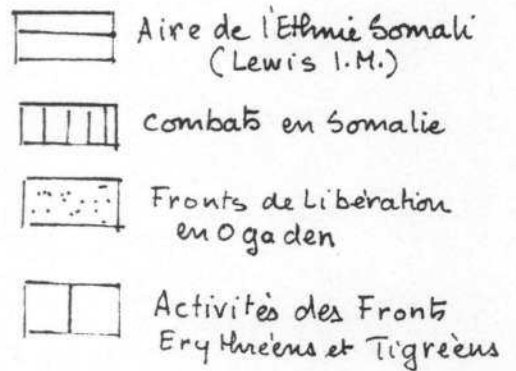 Aire de l'Ethnie Somali
(Lewis I.M.)
Combats en Somalie
Fronts de Libération
en Ogaden
Activités des Fronts
Erythréens et Tigréens